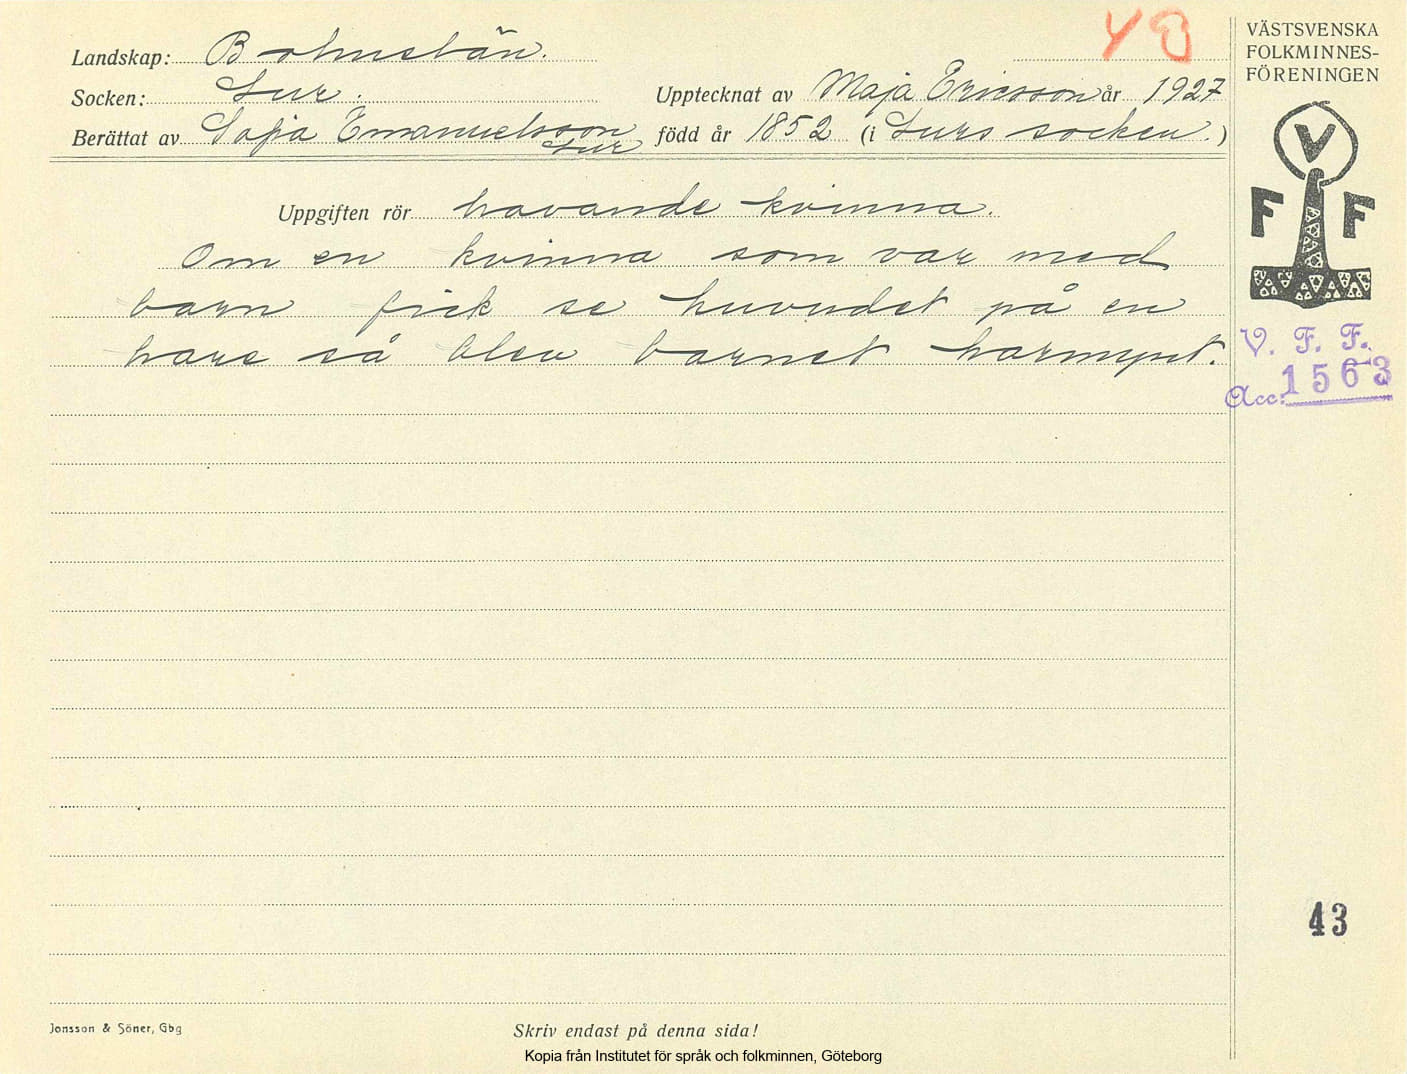 YD
Landskap: Bohuslän.
Socken: Lur. Upptecknat av Maja Ericsson år 1927
Berättat av Sofia Emanuelsson Lur född år 1852 (i Lurs socken.)
Uppgiften rör havande kvinna.
Om en kvinna som var med
barn fick se huvudet på en
hare så blev barnet harmynt.
VÄSTSVENSKA
FOLKMINNES-
FÖRENINGEN
V
F F
V. F. F.
Acc: 1563
43
Jonsson & Söner, Gbg
Skriv endast på denna sida!
Kopia från Institutet för språk och folkminnen, Göteborg